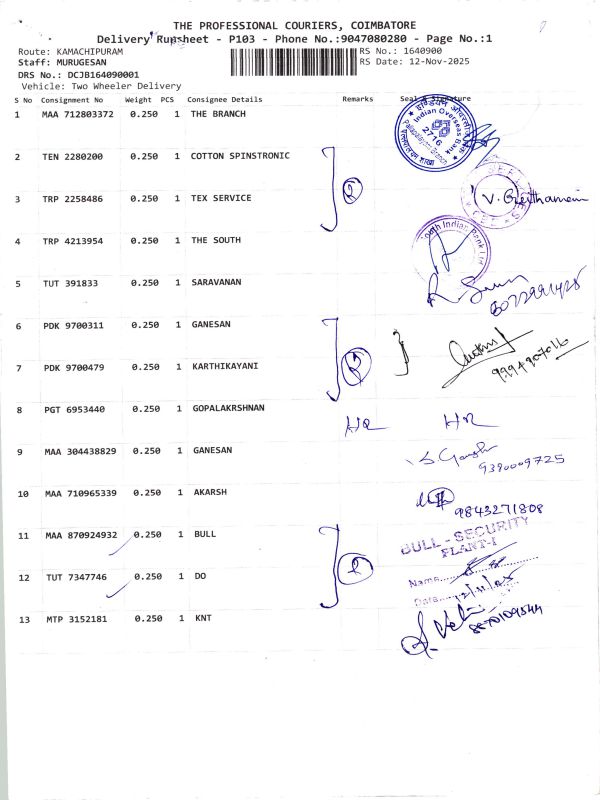 THE PROFESSIONAL COURIERS, COIMBATORE
Delivery Runsheet - P103 - Phone No.:9047080280 - Page No.:1
Route: KAMACHIPURAM RS No.: 1640900
Staff: MURUGESAN RS Date: 12-Nov-2025
DRS No.: DCJB164090001
Vehicle: Two Wheeler Delivery
S No Consignment No Weight PCS Consignee Details Remarks Seal & Signature
1 MAA 712803372 0.250 1 THE BRANCH
Indian Overseas Bank
2716
2 TEN 2280200 0.250 1 COTTON SPINSTRONIC
2
3 TRP 2258486 0.250 1 TEX SERVICE
4 TRP 4213954 0.250 1 THE SOUTH
South Indian Bank Ltd
5 TUT 391833 0.250 1 SARAVANAN
6 PDK 9700311 0.250 1 GANESAN
2
7 PDK 9700479 0.250 1 KARTHIKAYANI
8 PGT 6953440 0.250 1 GOPALAKRSHNAN
9 MAA 304438829 0.250 1 GANESAN
9380009725
10 MAA 710965339 0.250 1 AKARSH
9843271808
11 MAA 870924932 0.250 1 BULL
BULL - SECURITY
PLANT-I
2
12 TUT 7347746 0.250 1 DO
Name
Date
13 MTP 3152181 0.250 1 KNT